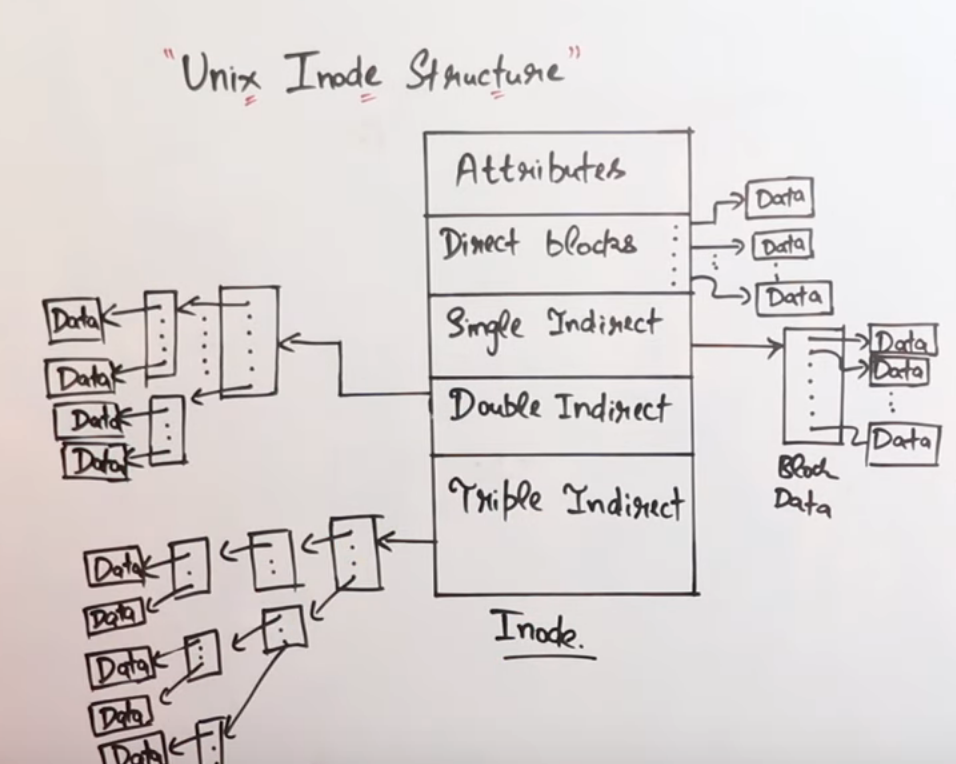 "Unix Inode Structure"
Attributes
Direct blocks
Single Indirect
Double Indirect
Triple Indirect
Inode.
Data
Data
Data
Data
Data
Data
Block
Data
Data
Data
Data
Data
Data
Data
Data
Data
Data